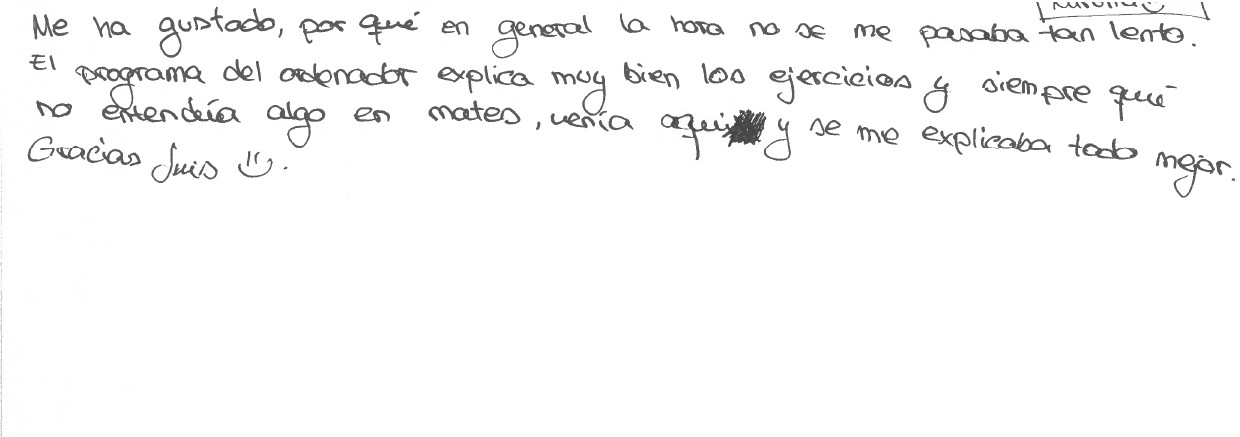 Me ha gustado, por qué en general la hora no se me pasaba tan lento.
El programa del ordenador explica muy bien los ejercicios y siempre qué
no entendía algo en mates, venía aquí y se me explicaba todo mejor.
Gracias Luis